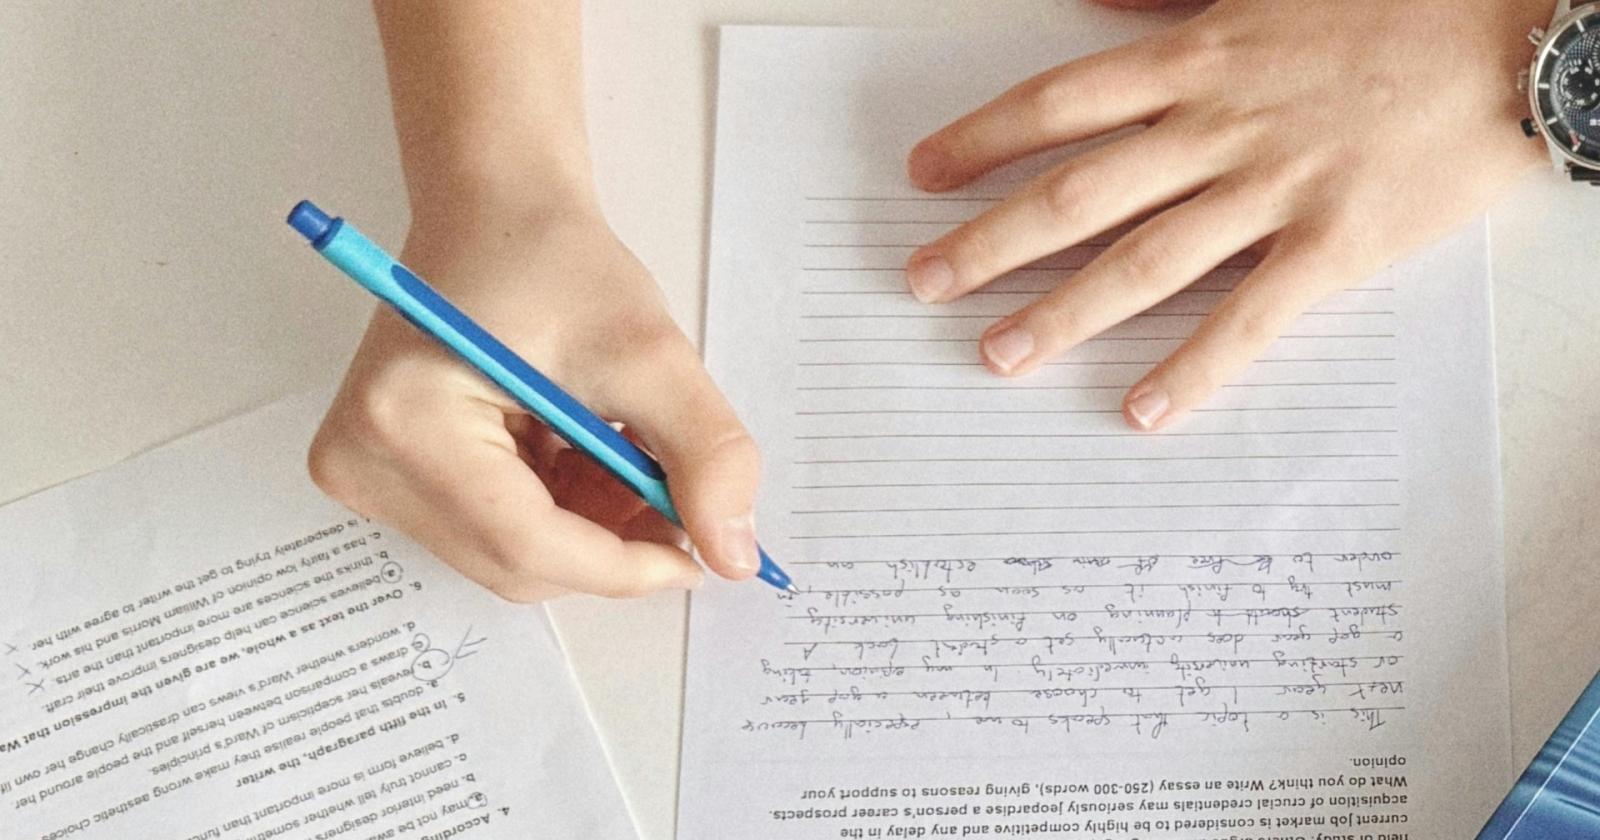 current job market is considered to be highly competitive and any delay in the
acquisition of crucial credentials may seriously jeopardise a person's career prospects.
What do you think? Write an essay (250-300 words), giving reasons to support your
opinion.
This is a topic that speaks to me, especially because
next year I get to choose between a gap year
or starting university immediately. In my opinion, taking
a gap year does actually set a student back. A
student should planning on finishing university
must try to finish it as soon as possible, in
order to establish an
4. According
a. may not be awa
b. need interior designers
c. cannot truly tell whether sometim
d. believe form is more important than func
5. In the fifth paragraph, the writer
a. doubts that people realise they make wrong aesthetic choices
b. reveals her scepticism of Ward's principles.
c. draws a comparison between herself and the people around her
d. wonders whether Ward's views can drastically change her own lif
6. Over the text as a whole, we are given the impression that Wa
a. believes science can help designers improve their craft.
b. thinks the sciences are more important than the arts.
c. has a fairly low opinion of William Morris and his work.
is desperately trying to get the writer to agree with her.